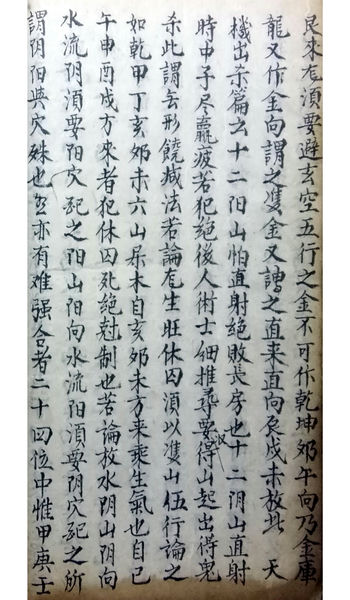 艮來龙須要避玄空五行之金不可作乾坤卯午向乃金庫
龍又作金向謂之隻金又謂之直来直向戌未放此 天
機出杀篇云十二阳山怕直射絕敗長房也十二阴山直射
時中子尽羸疲若犯絕後人術士細推尋要得山起出得鬼
杀此謂去形饒减法若論龙生旺休囚須以隻山伍行論之
如乾甲丁亥卯未六山属木自亥卯未方来乘生氣也自巳
午申酉戌方來者犯休囚死絕尅制也若論放水阴山阴向
水流阴須要阳穴配之阳山阳向水流阳須要阴穴配之所
謂阴阳與穴殊也然亦有难强合者二十四位中惟甲庚壬